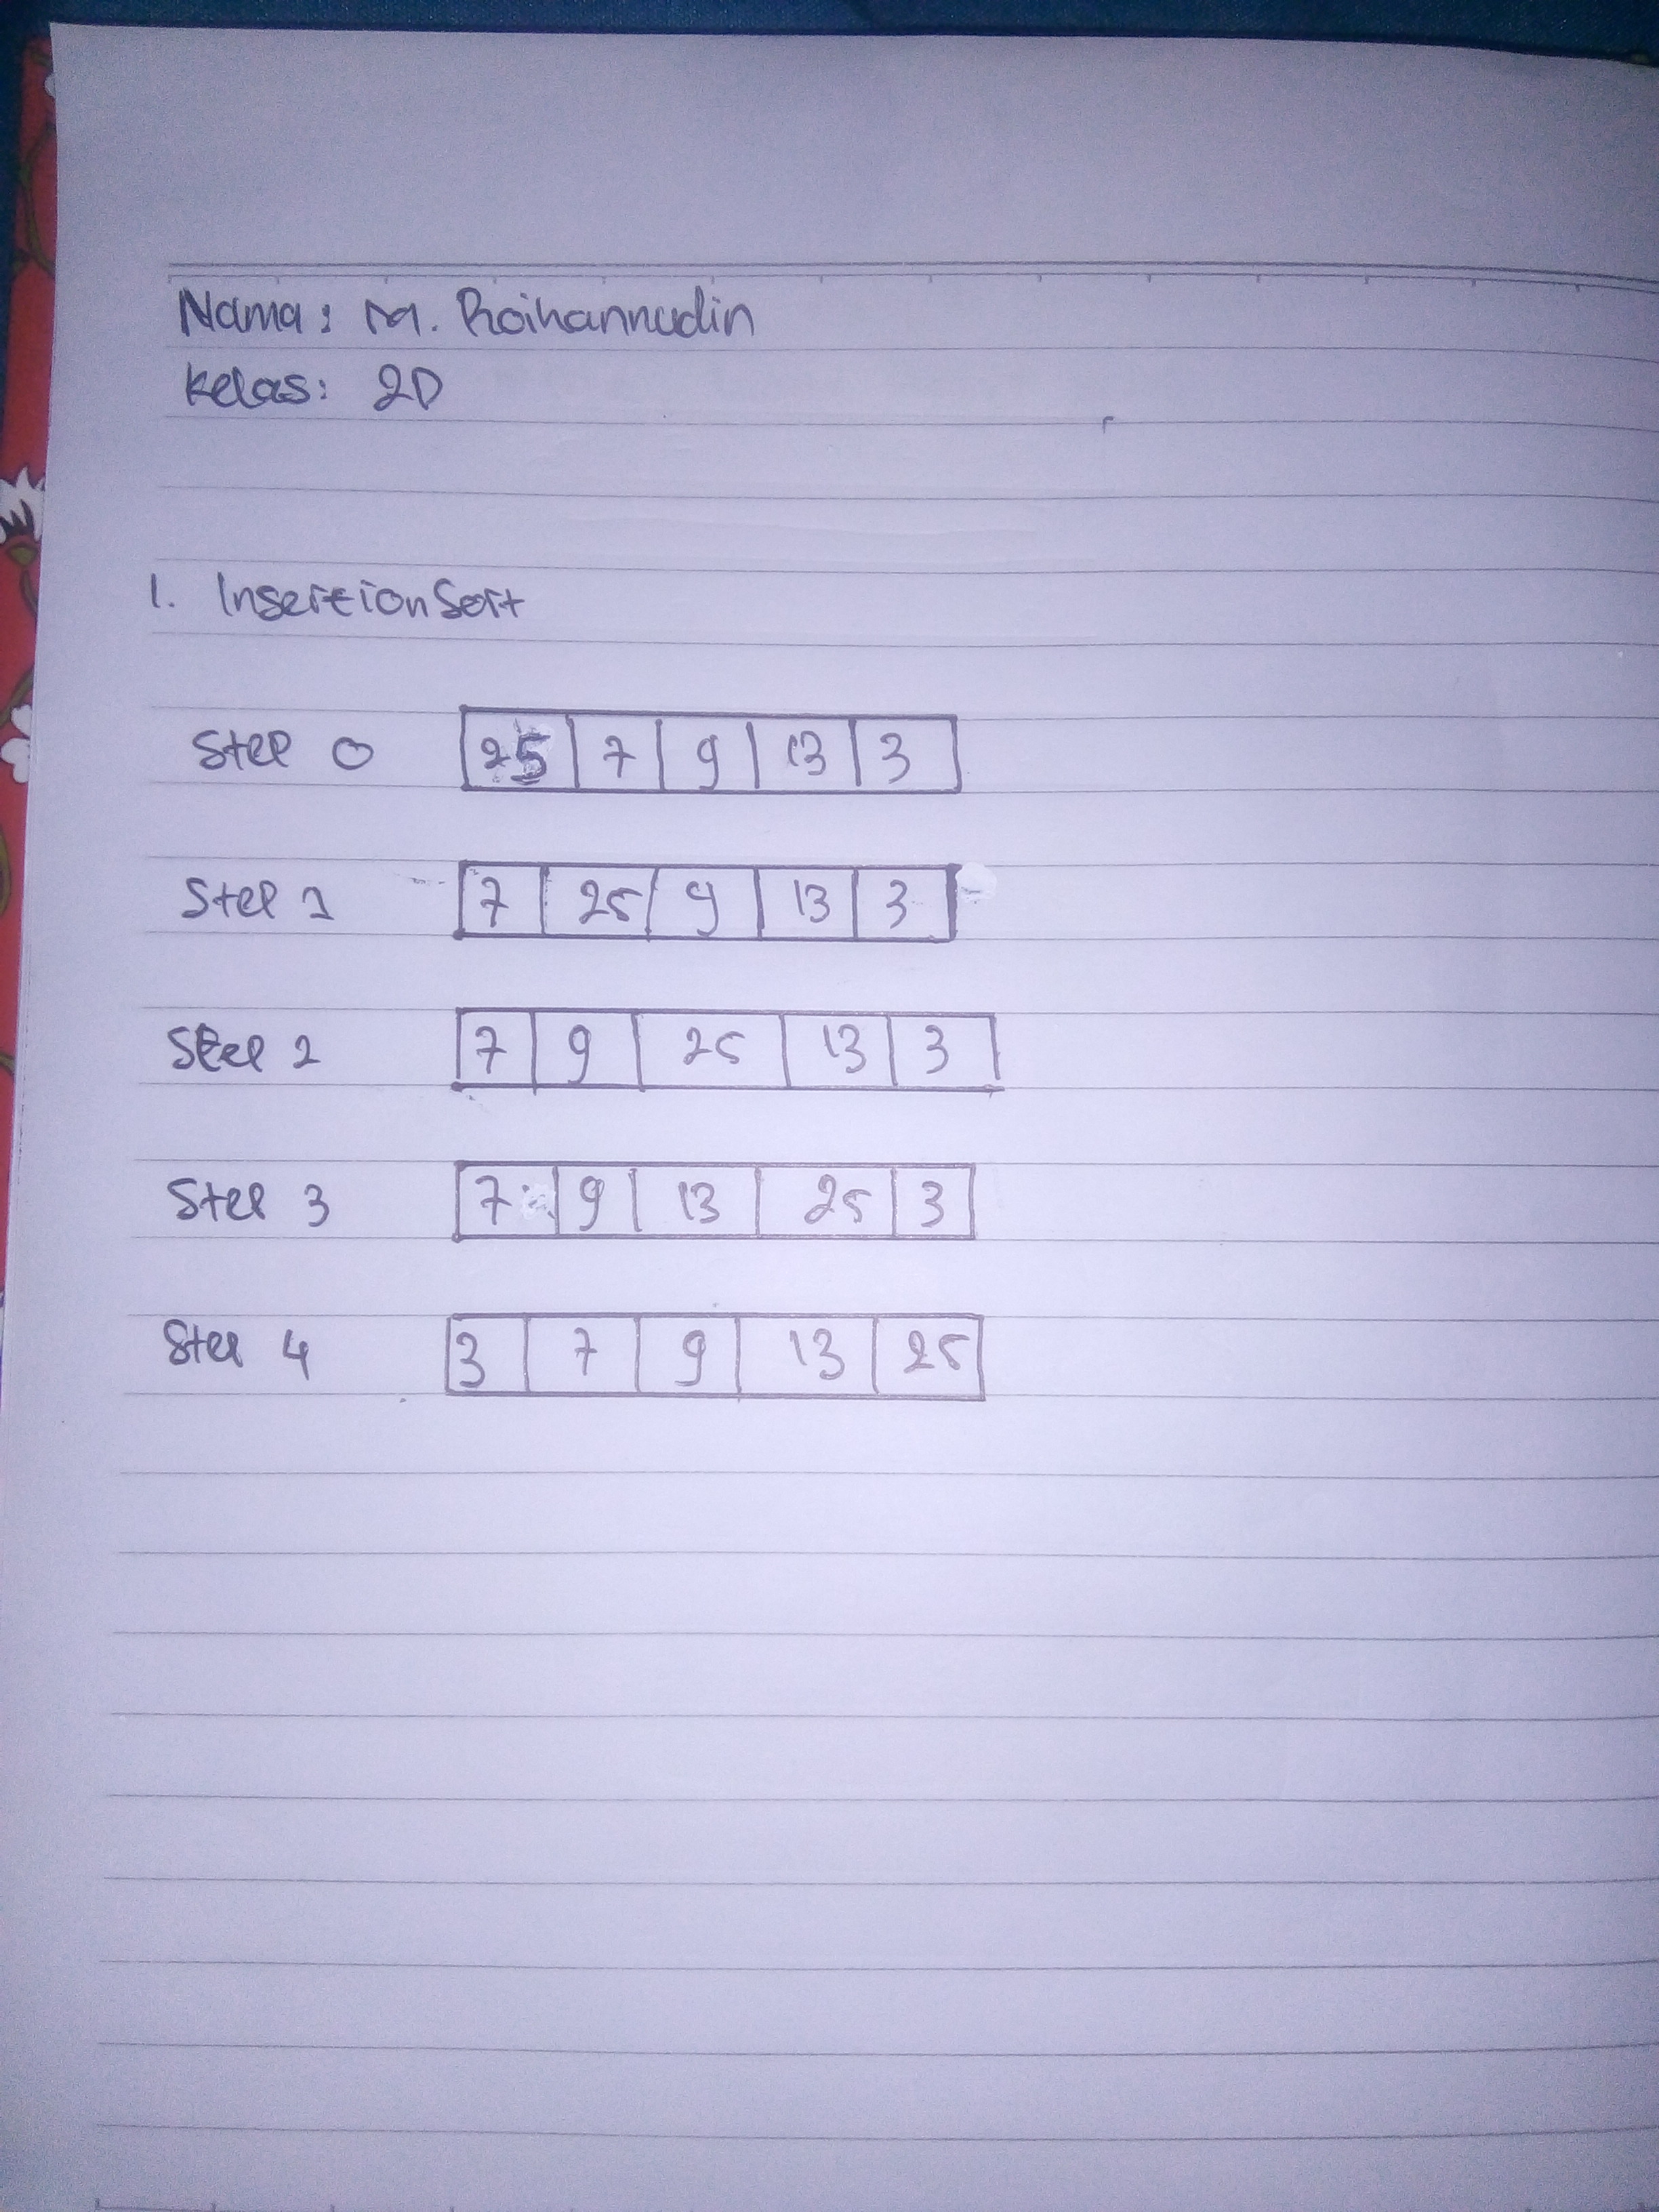 Nama: M. Roihannudin
Kelas: 2D
1. Insertion Sort
Step 0 25 7 9 13 3
Step 1 7 25 9 13 3
Step 2 7 9 25 13 3
Step 3 7 9 13 25 3
Step 4 3 7 9 13 25